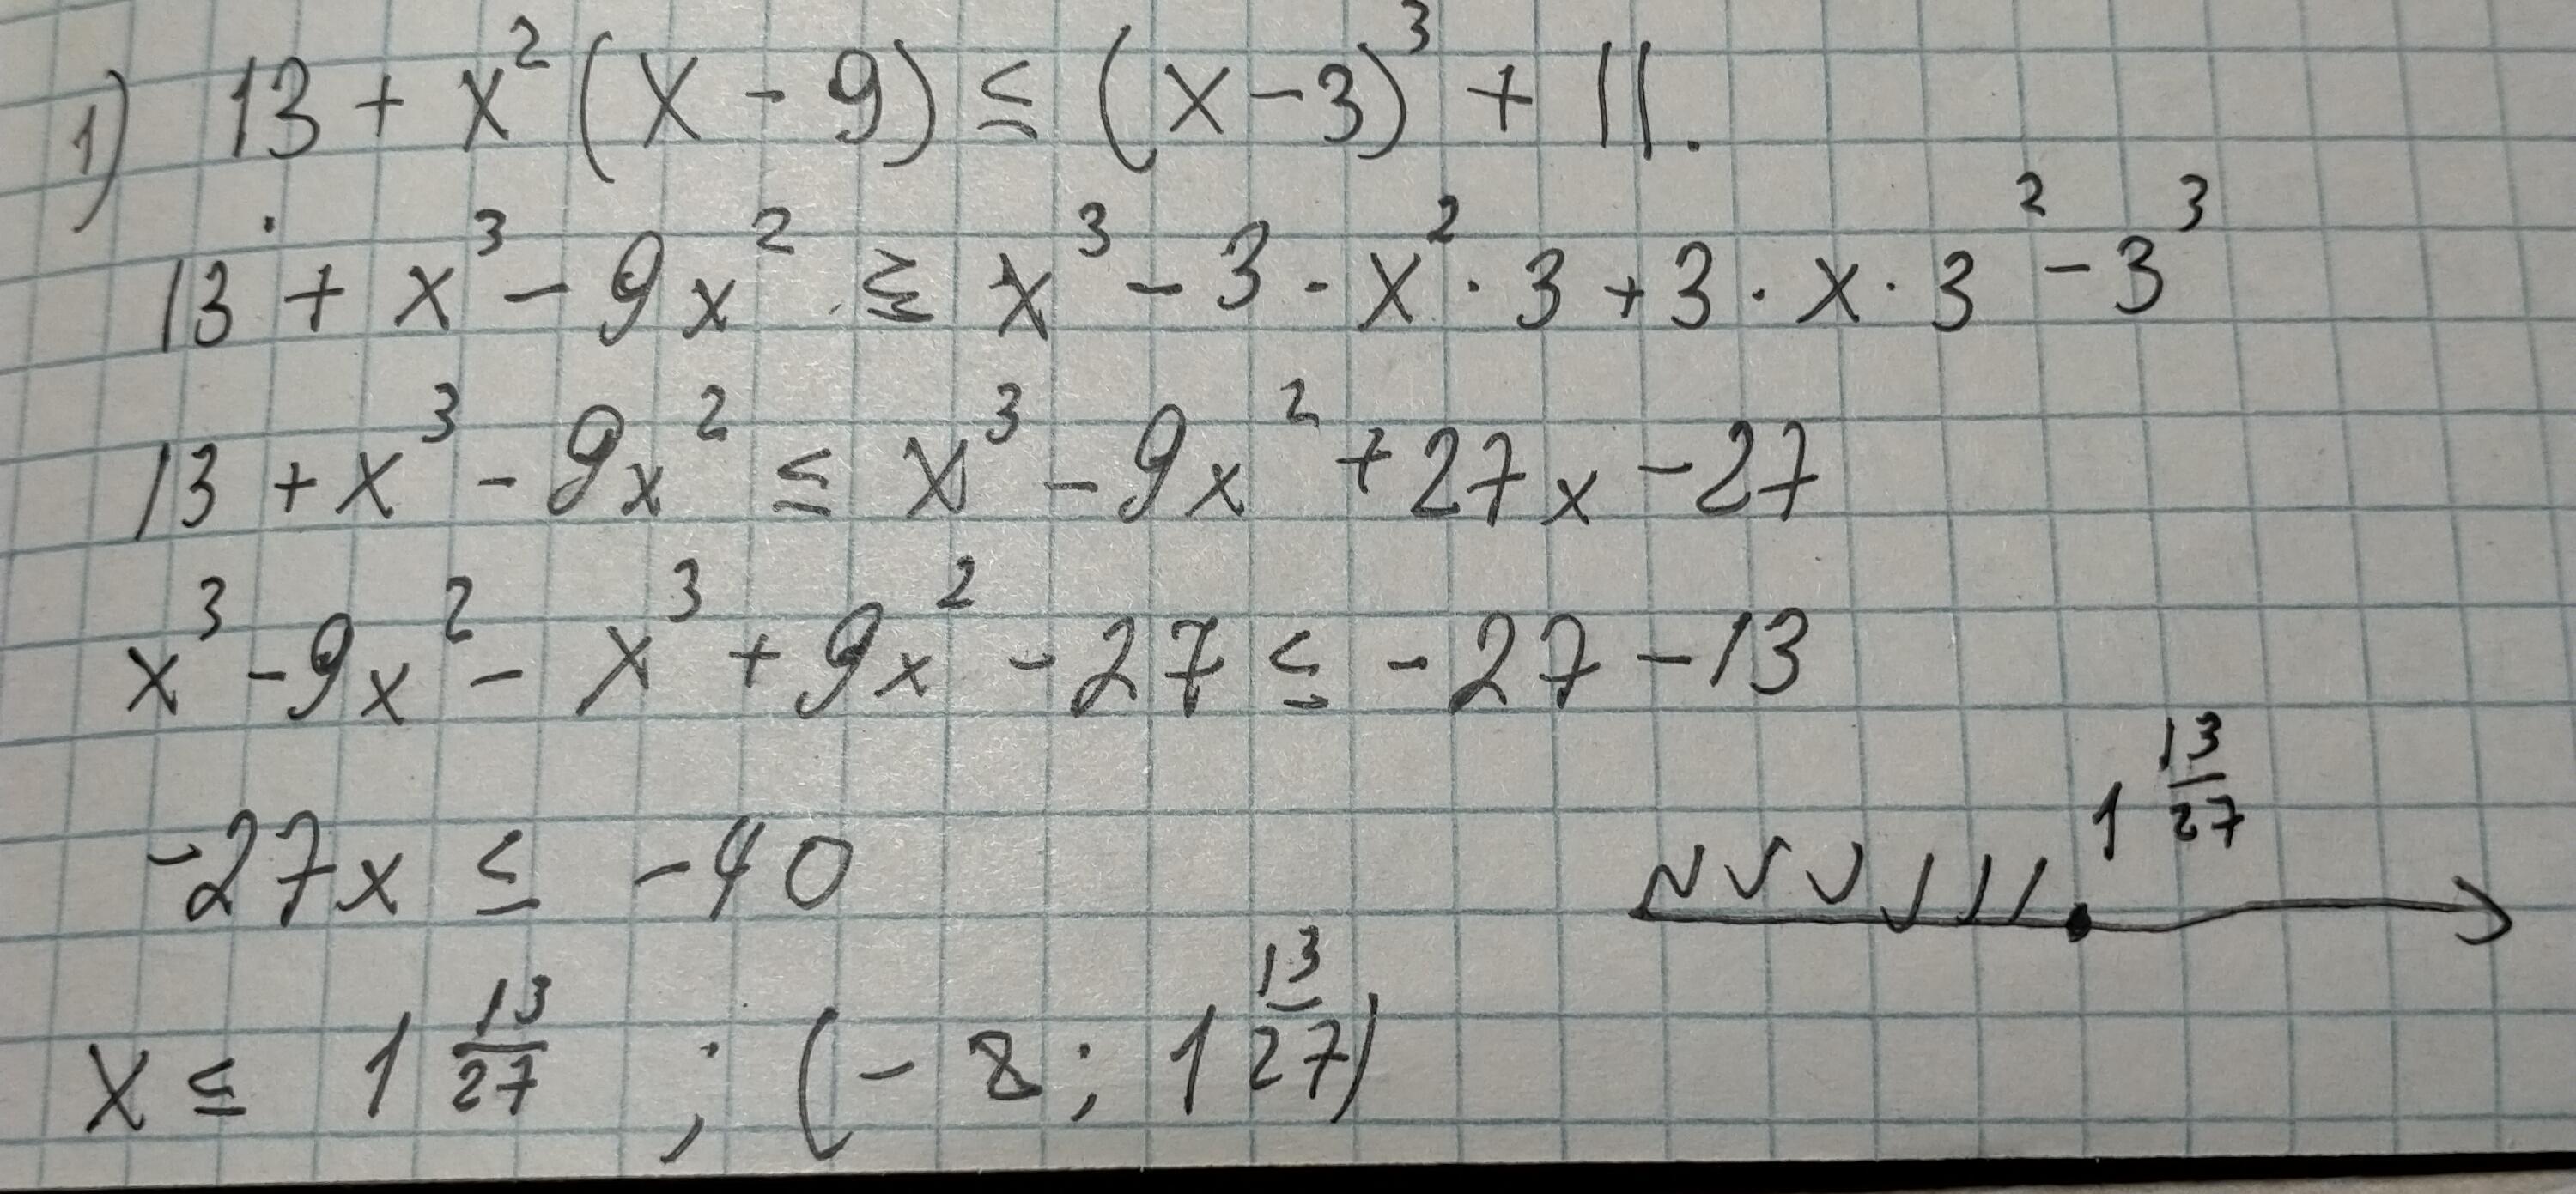 1) 13 + x² (x - 9) ≤ (x - 3)³ + 11.
13 + x³ - 9x² ≤ x³ - 3 · x² · 3 + 3 · x · 3² - 3³
13 + x³ - 9x² ≤ x³ - 9x² + 27x - 27
x³ - 9x² - x³ + 9x² - 27 ≤ -27 - 13
-27x ≤ -40
1 13/27
x ≤ 1 13/27 ; (-8; 1 13/27)